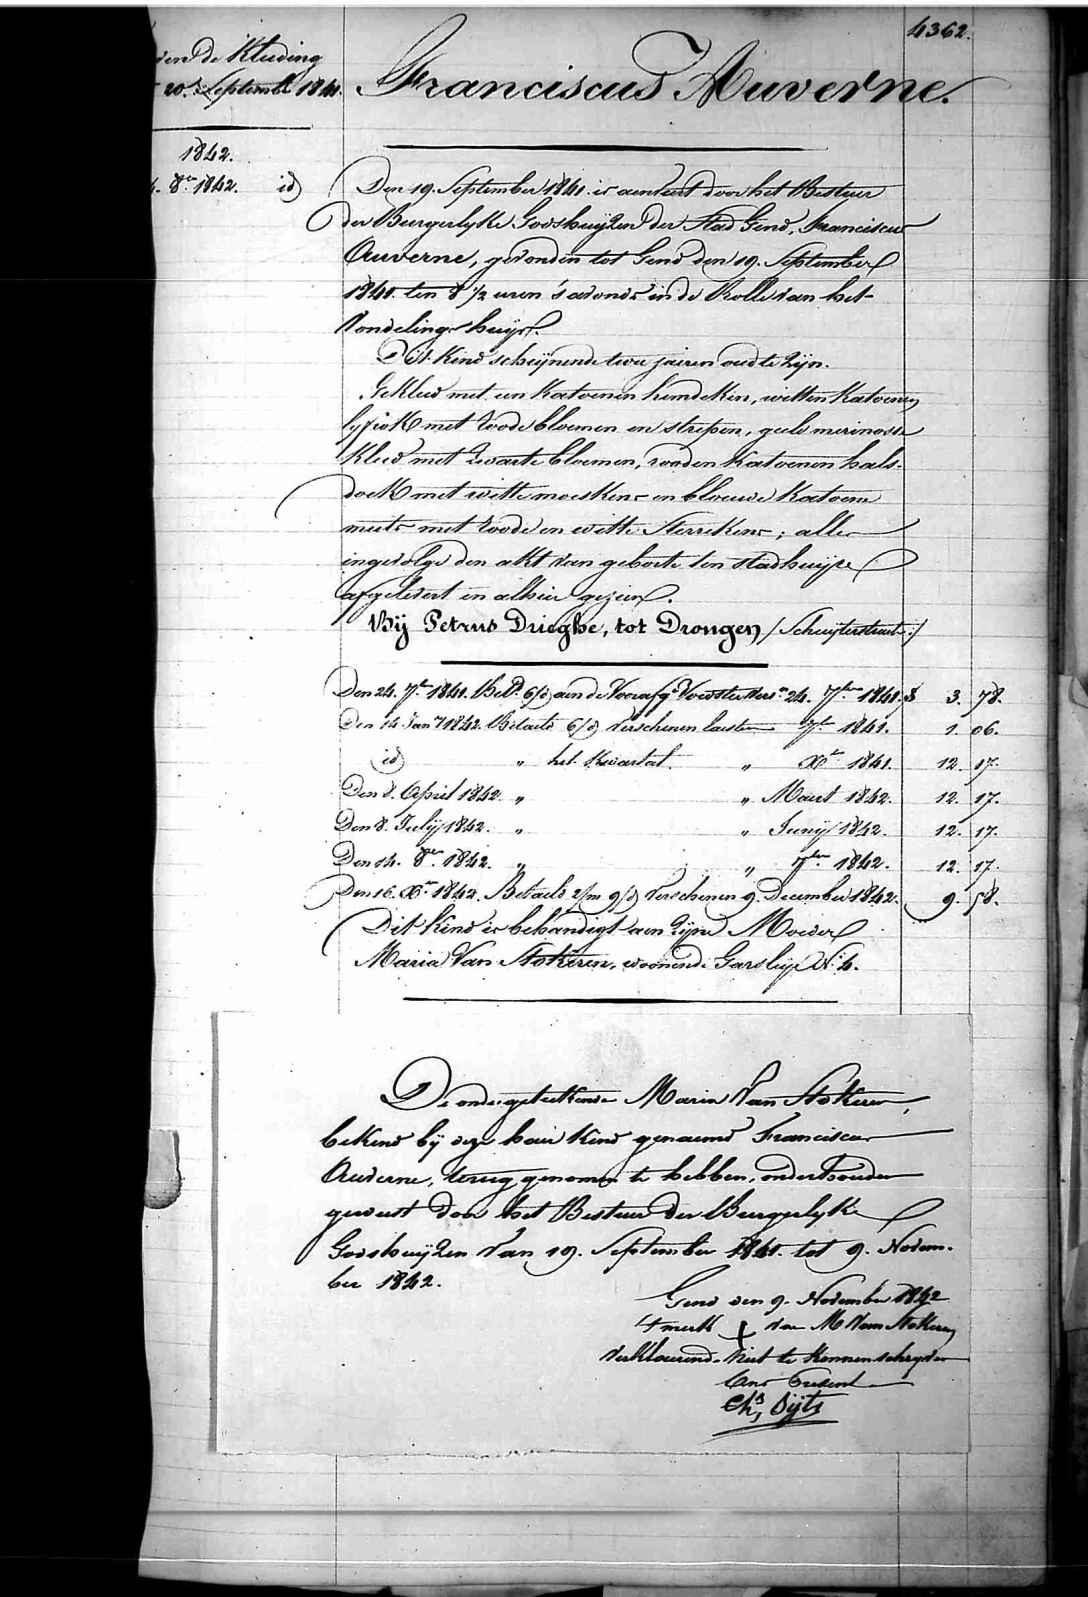 4362.
de Kleeding
20. Septemb. 1841.
Franciscus Auverne.
1842.
8.er 1842. id
Den 19. September 1841 is aenveert door het Bestuer
der Burgerlyke Godshuyzen der Stad Gend, Franciscus
Auverne, gevonden tot Gend den 19. September
1841. ten 8 1/2 uren 's avonds in de Rolle van het
Vondelings huys.
Dit Kind schynende twee jaeren oud te zyn.
Gekleed met een Katoenen hemdeken, witten Katoenen
lyfrok met roode bloemen en strepen, geele merinosse
Kleed met zwarte bloemen, rooden Katoenen hals-
doek met witte moeskens en blauwe Katoene
muts met roode en witte Sterrekens; alles
ingevolge den akt van geboorte ten Stadhuyze
afgelevert en alhier gezien.
Bij Petrus Drieghe, tot Drongen /Schuyterstraete:/
Den 24. 7.er 1841. Bet.d 6/d aen de Voorafg. Voedster Vers.n 24. 7.ber 1841. 3. 78.
Den 14 Jan.y 1842. Betaeld 6/d Verschenen laesten 7.er 1841. 1. 06.
id " het Kwartael " X.er 1841. 12. 17.
Den 8. April 1842. " " Maert 1842. 12. 17.
Den 8. July 1842. " " Juny 1842. 12. 17.
Den 14. 8.er 1842. " " 7.ber 1842. 12. 17.
Den 16. X.er 1842. Betaeld 2/m 9/d Verschenen 9. December 1842. 9. 58.
Dit Kind is behandigt aen zyne Moeder
Maria Van Stokeren, woonende Garslyze N.4.
De ondergeteekende Maria Van Stokeren,
bekend by deze haer Kind genaemd Franciscus
Auverne, terug genomen te hebben, onderhouden
geweest door het Bestuer der Burgerlyke
Godshuyzen Van 19. September 1841. tot 9. Novem-
ber 1842.
Gend den 9. November 1842
't merk + van M Van Stokeren
verklaerende niet te Konnen schryven
Ons Present
Ch.s Dijts